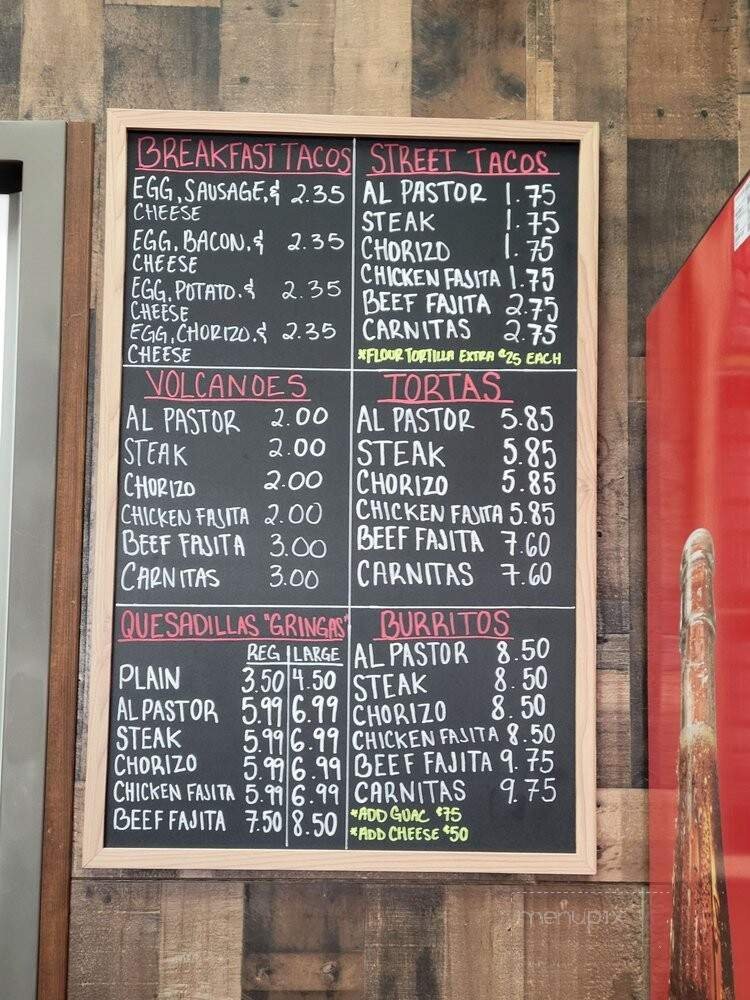 BREAKFAST TACOS
EGG, SAUSAGE, & 2.35
CHEESE
EGG, BACON, & 2.35
CHEESE
EGG, POTATO, & 2.35
CHEESE
EGG, CHORIZO, & 2.35
CHEESE
STREET TACOS
AL PASTOR 1.75
STEAK 1.75
CHORIZO 1.75
CHICKEN FAJITA 1.75
BEEF FAJITA 2.75
CARNITAS 2.75
*FLOUR TORTILLA EXTRA ¢25 EACH
VOLCANOES
AL PASTOR 2.00
STEAK 2.00
CHORIZO 2.00
CHICKEN FAJITA 2.00
BEEF FAJITA 3.00
CARNITAS 3.00
TORTAS
AL PASTOR 5.85
STEAK 5.85
CHORIZO 5.85
CHICKEN FAJITA 5.85
BEEF FAJITA 7.60
CARNITAS 7.60
QUESADILLAS "GRINGAS"
REG LARGE
PLAIN 3.50 4.50
AL PASTOR 5.99 6.99
STEAK 5.99 6.99
CHORIZO 5.99 6.99
CHICKEN FAJITA 5.99 6.99
BEEF FAJITA 7.50 8.50
BURRITOS
AL PASTOR 8.50
STEAK 8.50
CHORIZO 8.50
CHICKEN FAJITA 8.50
BEEF FAJITA 9.75
CARNITAS 9.75
*ADD GUAC ¢75
*ADD CHEESE ¢50
menupix